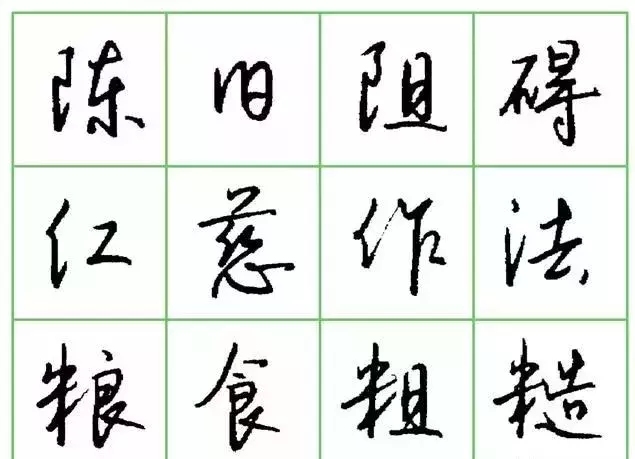 陈旧阻碍
仁慈作法
粮食粗糙